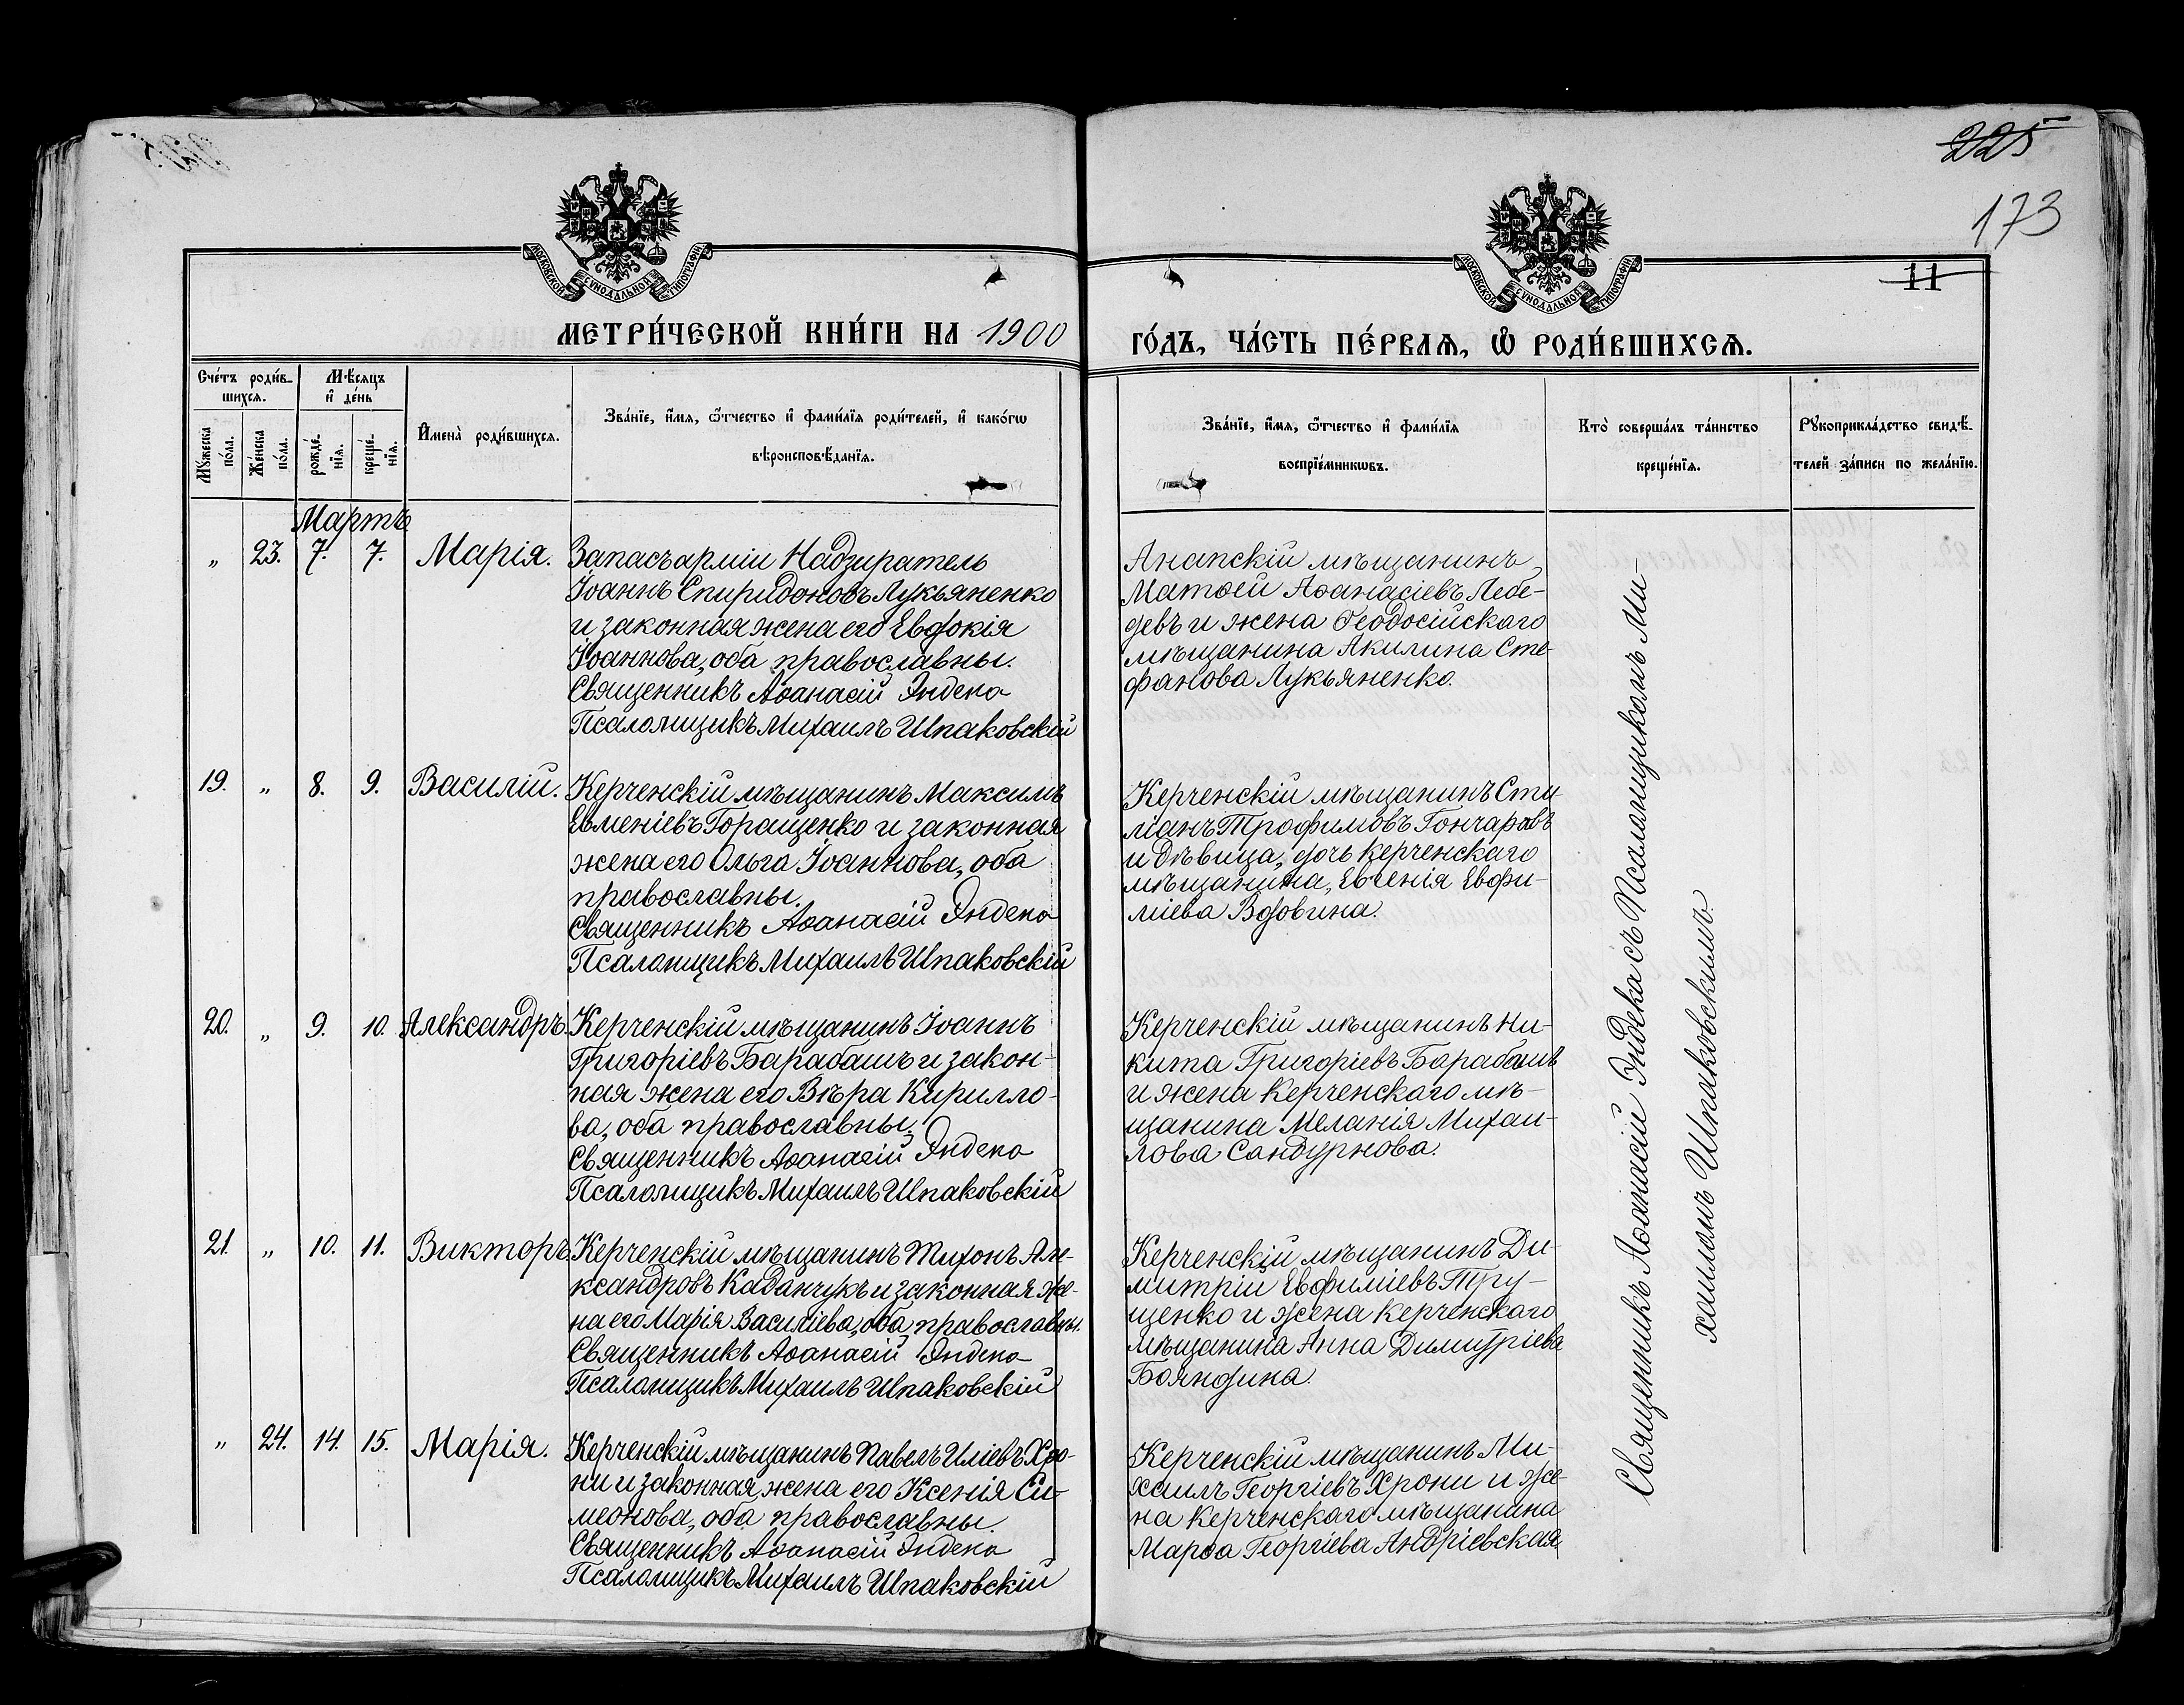 225
173
11
МОСКОВСКОЙ СѴНОДАЛЬНОЙ ТИПОГРАФІИ
МОСКОВСКОЙ СѴНОДАЛЬНОЙ ТИПОГРАФІИ
МЕТРИ́ЧЕСКОЙ КНИ́ГИ НА 1900
ГО́ДЪ, ЧА́СТЬ ПЕ́РВАѦ, Ѽ РОДИ́ВШИХСѦ.
Сче́тъ роди́в-
шихсѧ.
Мꙋ́жеска по́ла.
Же́нска по́ла.
Мѣ́сѧцъ и҆ де́нь
рожде́нїѧ.
креще́нїѧ.
И҆мена̀ роди́вшихсѧ.
Зва́нїе, и҆́мѧ, ѻ҆́тчество и҆ фами́лїѧ роди́телей, и҆ како́гѡ
вѣроисповѣ́данїѧ.
Зва́нїе, и҆́мѧ, ѻ҆́тчество и҆ фами́лїѧ
воспрїе́мникѡвъ.
Кто̀ соверша́лъ та́инство
креще́нїѧ.
Рꙋкоприкла́дство свидѣ́-
телей за́писи по жела́нїю.
Мартъ
„ 23. 7. 7. Марія.
Запасъ арміи Надзиратель
Іоаннъ Спиридоновъ Лукьяненко
и законная жена его Евдокія
Іоаннова, оба православны.
Священникъ Аѳанасій Эндека
Псаломщикъ Михаилъ Шпаковскій
Анапскій мѣщанинъ
Матѳей Аѳанасіевъ Лебе-
девъ и жена Ѳеодосійскаго
мѣщанина Акилина Сте-
фанова Лукьяненко.
19. „ 8. 9. Василій.
Керченскій мѣщанинъ Максимъ
Евменіевъ Горащенко и законная
жена его Ольга Іоаннова, оба
православны.
Священникъ Аѳанасій Эндека
Псаломщикъ Михаилъ Шпаковскій
Керченскій мѣщанинъ Сти-
ліанъ Трофимовъ Гончаровъ
и дѣвица, дочь керченскаго
мѣщанина, Евгенія Евфи-
міева Вдовина.
20. „ 9. 10. Александръ.
Керченскій мѣщанинъ Іоаннъ
Григоріевъ Барабашъ и закон-
ная жена его Вѣра Кирилло-
ва, оба православны.
Священникъ Аѳанасій Эндека
Псаломщикъ Михаилъ Шпаковскій
Керченскій мѣщанинъ Ни-
кита Григоріевъ Барабашъ
и жена керченскаго мѣ-
щанина Меланія Михаи-
лова Сандурнова.
21. „ 10. 11. Викторъ.
Керченскій мѣщанинъ Тихонъ Але-
ксандровъ Каданчукъ и законная же-
на его Марія Василіева, оба православны.
Священникъ Аѳанасій Эндека
Псаломщикъ Михаилъ Шпаковскій
Керченскій мѣщанинъ Ди-
митрій Евфиміевъ Тру-
щенко и жена керченскаго
мѣщанина Анна Димитріева
Бояндина.
„ 24. 14. 15. Марія.
Керченскій мѣщанинъ Павелъ Иліевъ Хро-
ни и законная жена его Ксенія Си-
меонова, оба православны.
Священникъ Аѳанасій Эндека
Псаломщикъ Михаилъ Шпаковскій
Керченскій мѣщанинъ Ми-
хаилъ Георгіевъ Хрони и же-
на керченскаго мѣщанина
Марѳа Георгіева Андріевская.
Священникъ Аѳанасій Эндека съ Псаломщикомъ Ми-
хаиломъ Шпаковскимъ.